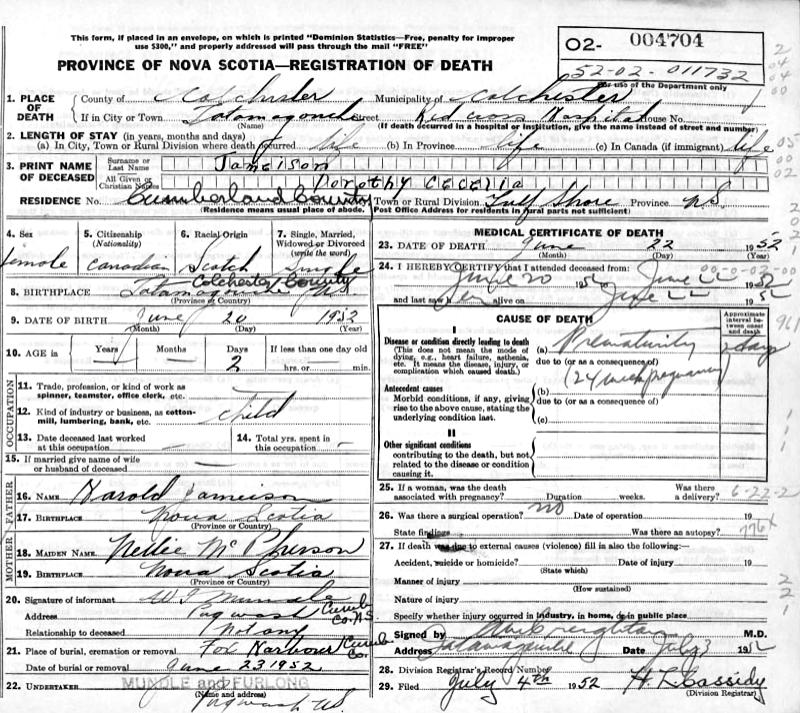 This form, if placed in an envelope, on which is printed "Dominion Statistics—Free, penalty for improper
use $300," and properly addressed will pass through the mail "FREE"
PROVINCE OF NOVA SCOTIA—REGISTRATION OF DEATH
O2- 004704
52-02-011732
For use of the Department only
1. PLACE OF DEATH County of Colchester Municipality of Colchester
If in City or Town Tatamagouche Street Red Cross Hospital House No.
(Name) (If death occurred in a hospital or institution, give the name instead of street and number)
2. LENGTH OF STAY (in years, months and days)
(a) In City, Town or Rural Division where death occurred life (b) In Province life (c) In Canada (if immigrant) life
3. PRINT NAME OF DECEASED Surname or Last Name Jameison
All Given or Christian Names Dorothy Cecelia
RESIDENCE No. Cumberland County Town or Rural Division Gulf Shore Province NS
(Residence means usual place of abode. Post Office Address for residents in rural parts not sufficient)
4. Sex female
5. Citizenship (Nationality) Canadian
6. Racial Origin Scotch
7. Single, Married, Widowed or Divorced (write the word) Single
8. BIRTHPLACE Tatamagouche Colchester County N.S.
(Province or Country)
9. DATE OF BIRTH June 20 1952
(Month) (Day) (Year)
10. AGE in Years Months Days 2 If less than one day old
hrs. or min.
OCCUPATION
11. Trade, profession, or kind of work as spinner, teamster, office clerk, etc.
12. Kind of industry or business, as cotton-mill, lumbering, bank, etc. child
13. Date deceased last worked at this occupation
14. Total yrs. spent in this occupation
15. If married give name of wife or husband of deceased
FATHER
16. NAME Harold Jameison
17. BIRTHPLACE Nova Scotia
(Province or Country)
MOTHER
18. MAIDEN NAME Nellie McPherson
19. BIRTHPLACE Nova Scotia
(Province or Country)
20. Signature of informant W J Mundle
Address Pugwash Cumb Co. N.S.
Relationship to deceased not any
21. Place of burial, cremation or removal Fox Harbour Cumb Co.
Date of burial or removal June 23 1952
22. UNDERTAKER MUNDLE and FURLONG
(Name and address) Pugwash NS
MEDICAL CERTIFICATE OF DEATH
23. DATE OF DEATH June 22 1952
(Month) (Day) (Year)
24. I HEREBY CERTIFY that I attended deceased from:
June 20 1952 to June 22 1952
and last saw her alive on June 22 1952
00-0-02-00
CAUSE OF DEATH
Approximate interval between onset and death
I
Disease or condition directly leading to death
(This does not mean the mode of dying, e.g., heart failure, asthenia, etc. It means the disease, injury, or complication which caused death.)
(a) Prematurity days
due to (or as a consequence of)
(24 week pregnancy)
Antecedent causes
Morbid conditions, if any, giving rise to the above cause, stating the underlying condition last.
(b)
due to (or as a consequence of)
(c)
II
Other significant conditions
contributing to the death, but not related to the disease or condition causing it.
25. If a woman, was the death associated with pregnancy? Duration weeks. Was there a delivery? 6-22-2
26. Was there a surgical operation? no Date of operation 19
State findings Was there an autopsy? 776X
27. If death was due to external causes (violence) fill in also the following:—
Accident, suicide or homicide? Date of injury 19
(State which)
Manner of injury
(How sustained)
Nature of injury
Specify whether injury occurred in industry, in home, or in public place
Signed by Creighton M.D.
Address Tatamagouche Date July 3 1952
28. Division Registrar's Record Number
29. Filed July 4th 1952 H. L. Cassidy
(Division Registrar)